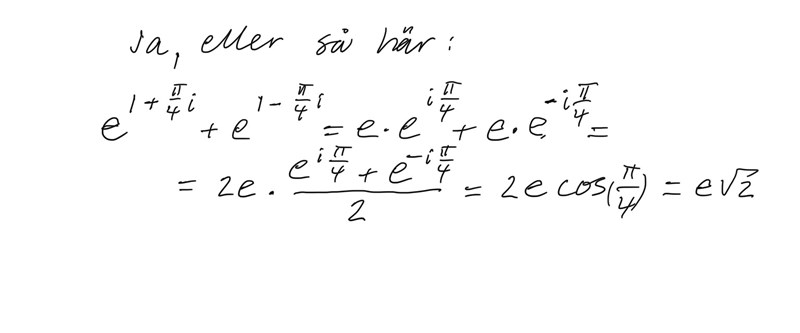 Ja, eller så här:
e^{1+\frac{π}{4}i} + e^{1-\frac{π}{4}i} = e·e^{i\frac{π}{4}} + e·e^{-i\frac{π}{4}} =
= 2e · \frac{e^{i\frac{π}{4}} + e^{-i\frac{π}{4}}}{2} = 2e cos(\frac{π}{4}) = e√2